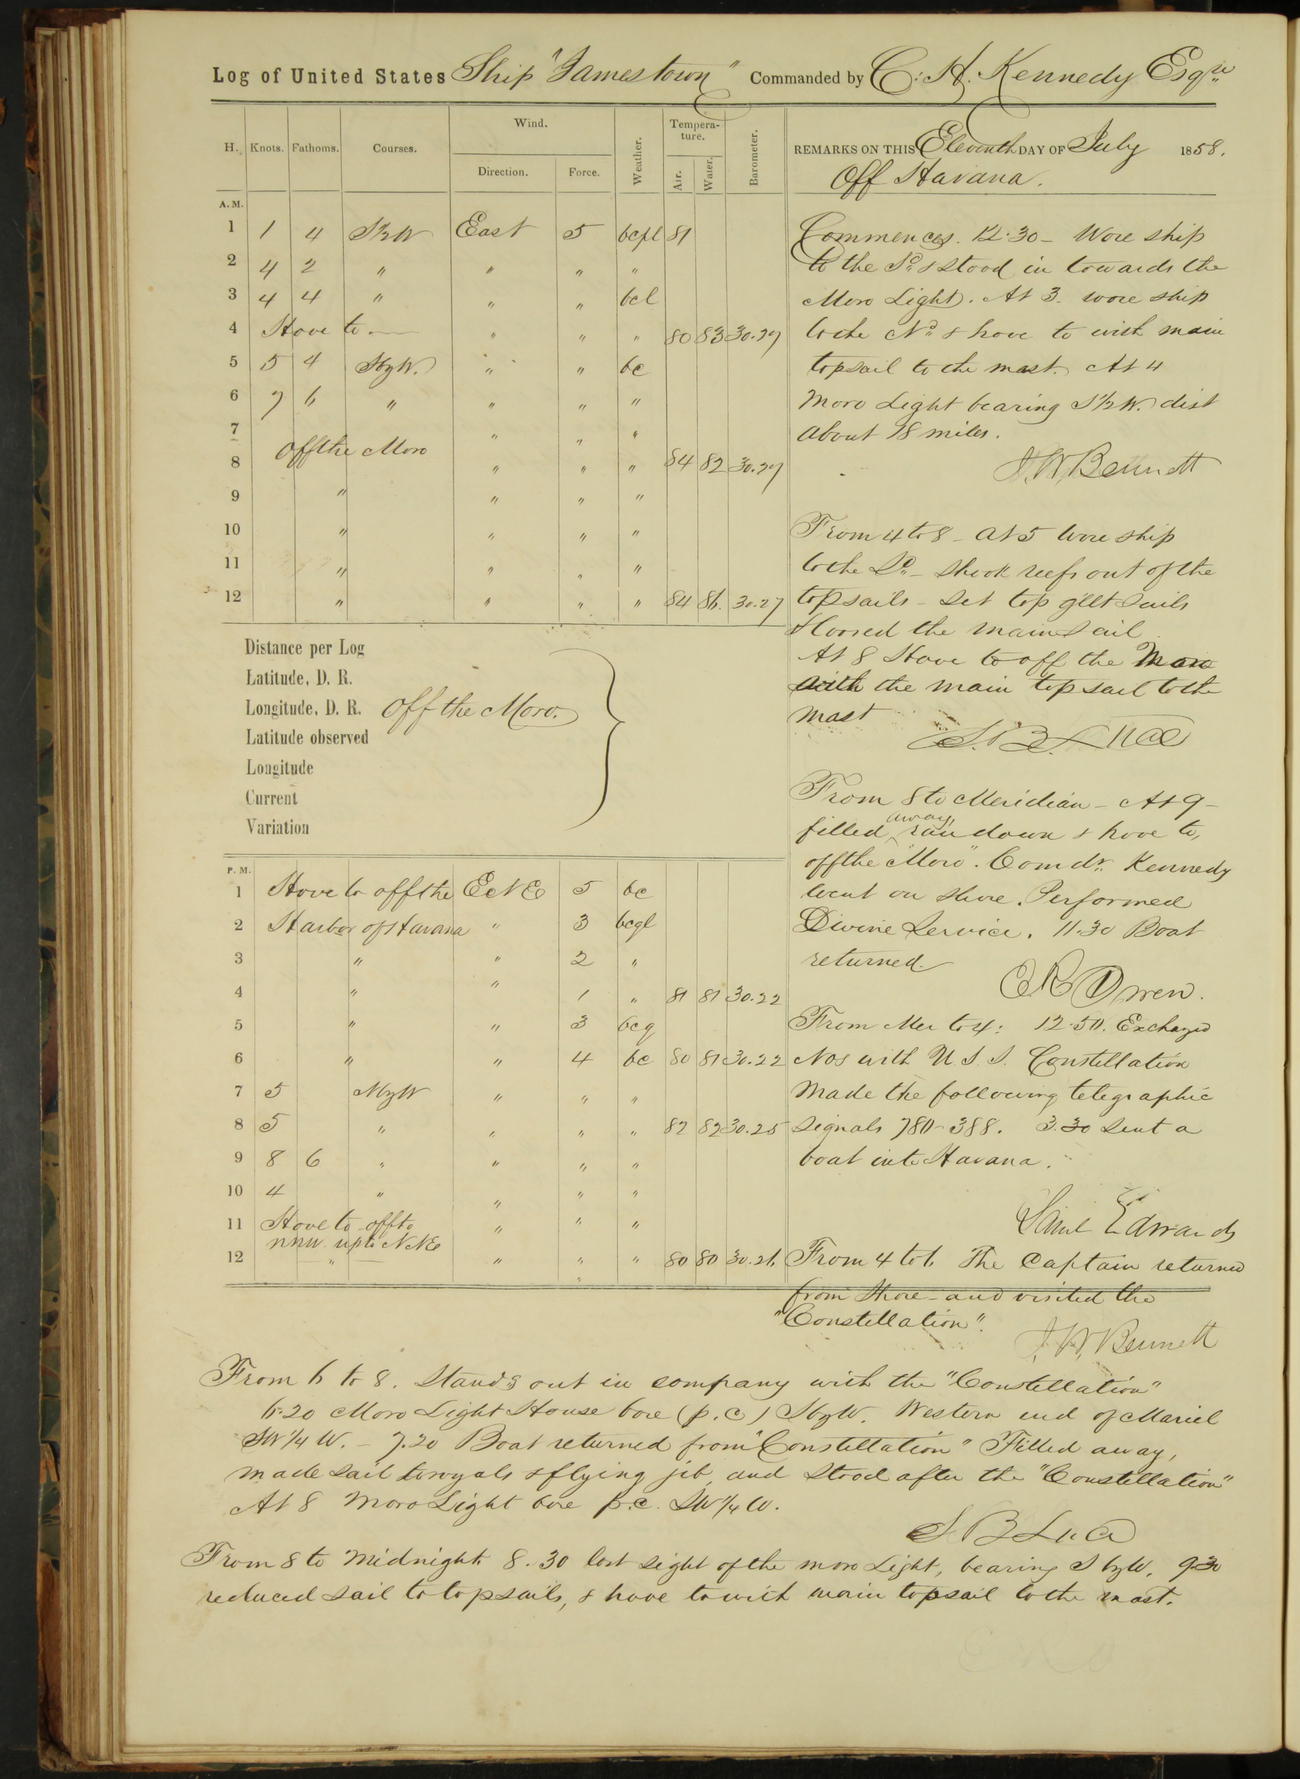 Log of United States Ship "Jamestown" Commanded by C. H. Kennedy Esqre
H. Knots. Fathoms. Courses. Wind. Direction. Force. Weather. Tempera-ture. Air. Water. Barometer.
REMARKS ON THIS Eleventh DAY OF July 1858.
Off Havana.
A. M.
1 1 4 S½W East 5 bcpl 81
2 4 2 " " " "
3 4 4 " " " bcl
4 Hove to " " " 80 83 30.27
5 5 4 SbyW. " " bc
6 7 6 " " " "
7 " " "
8 Off the Moro " " " 84 82 30.27
9 " " " "
10 " " " "
11 " " " "
12 " " " " 84 86. 30.27
Distance per Log
Latitude, D. R.
Longitude, D. R. Off the Moro.
Latitude observed
Longitude
Current
Variation
P. M.
1 Hove to off the ENE 5 bc
2 Harbor of Havana " 3 bcgl
3 " " 2 "
4 " " 1 " 81 81 30.22
5 " " 3 bcq
6 " " 4 bc 80 81 30.22
7 5 NbyW " " "
8 5 " " " " 82 82 30.25
9 8 6 " " " "
10 4 " " " "
11 Hove to off to " " "
NNW. up to NNE
12 " " " " 80 80 30.26
Commences. 12.30 - Wore ship
to the Sd. & stood in towards the
Moro Light. At 3. wore ship
to the Nd & hove to with main
topsail to the mast. At 4
Moro Light bearing S½W. dist
about 18 miles.
J. W. Bennett
From 4 to 8 - At 5 Wore ship
to the Sd. - Shook reefs out of the
topsails - Set top gllt Sails
& loosed the mainsail
At 8 Hove to off the Moro
with the main topsail to the
mast
S. B. Luce
From 8 to Meridian - At 9 -
filled away, ran down & hove to,
off the "Moro". Comdr. Kennedy
went on shore. Performed
Divine Service. 11.30 Boat
returned.
E K Owen.
From Mer to 4: 12.50. Exchaged
Nos with U. S. S. Constellation
Made the following telegraphic
signals 780 - 388. 3.30 Sent a
boat into Havana.
Saml Edwards
From 4 to 6. The Captain returned
from Shore - and visited the
"Constellation".
J. W. Bennett
From 6 to 8. Stands out in company with the "Constellation"
6.20 Moro Light House bore (p. c) SbyW. Western end of Mariel
SW¼W. - 7.20 Boat returned from "Constellation" Filled away,
made sail to royals & flying jib, and stood after the "Constellation"
At 8 Moro Light bore p.c. SW¼W.
S B Luce
From 8 to Midnight 8.30 lost sight of the moro Light, bearing SbyW. 9.30
reduced sail to topsails, & hove to with main topsail to the mast.